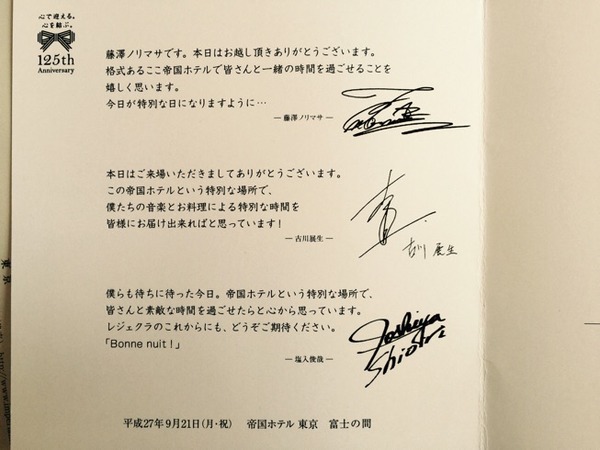 心で迎える。
心を結ぶ。
125th
Anniversary
藤澤ノリマサです。本日はお越し頂きありがとうございます。
格式あるここ帝国ホテルで皆さんと一緒の時間を過ごせることを
嬉しく思います。
今日が特別な日になりますように…
― 藤澤ノリマサ ―
本日はご来場いただきましてありがとうございます。
この帝国ホテルという特別な場所で、
僕たちの音楽とお料理による特別な時間を
皆様にお届け出来ればと思っています!
― 古川展生 ―
古川 展生
僕らも待ちに待った今日。帝国ホテルという特別な場所で、
皆さんと素敵な時間を過ごせたらと心から思っています。
レジェクラのこれからにも、どうぞご期待ください。
「Bonne nuit!」
― 塩入俊哉 ―
Toshiya
Shioiri
平成27年9月21日(月・祝) 帝国ホテル 東京 富士の間